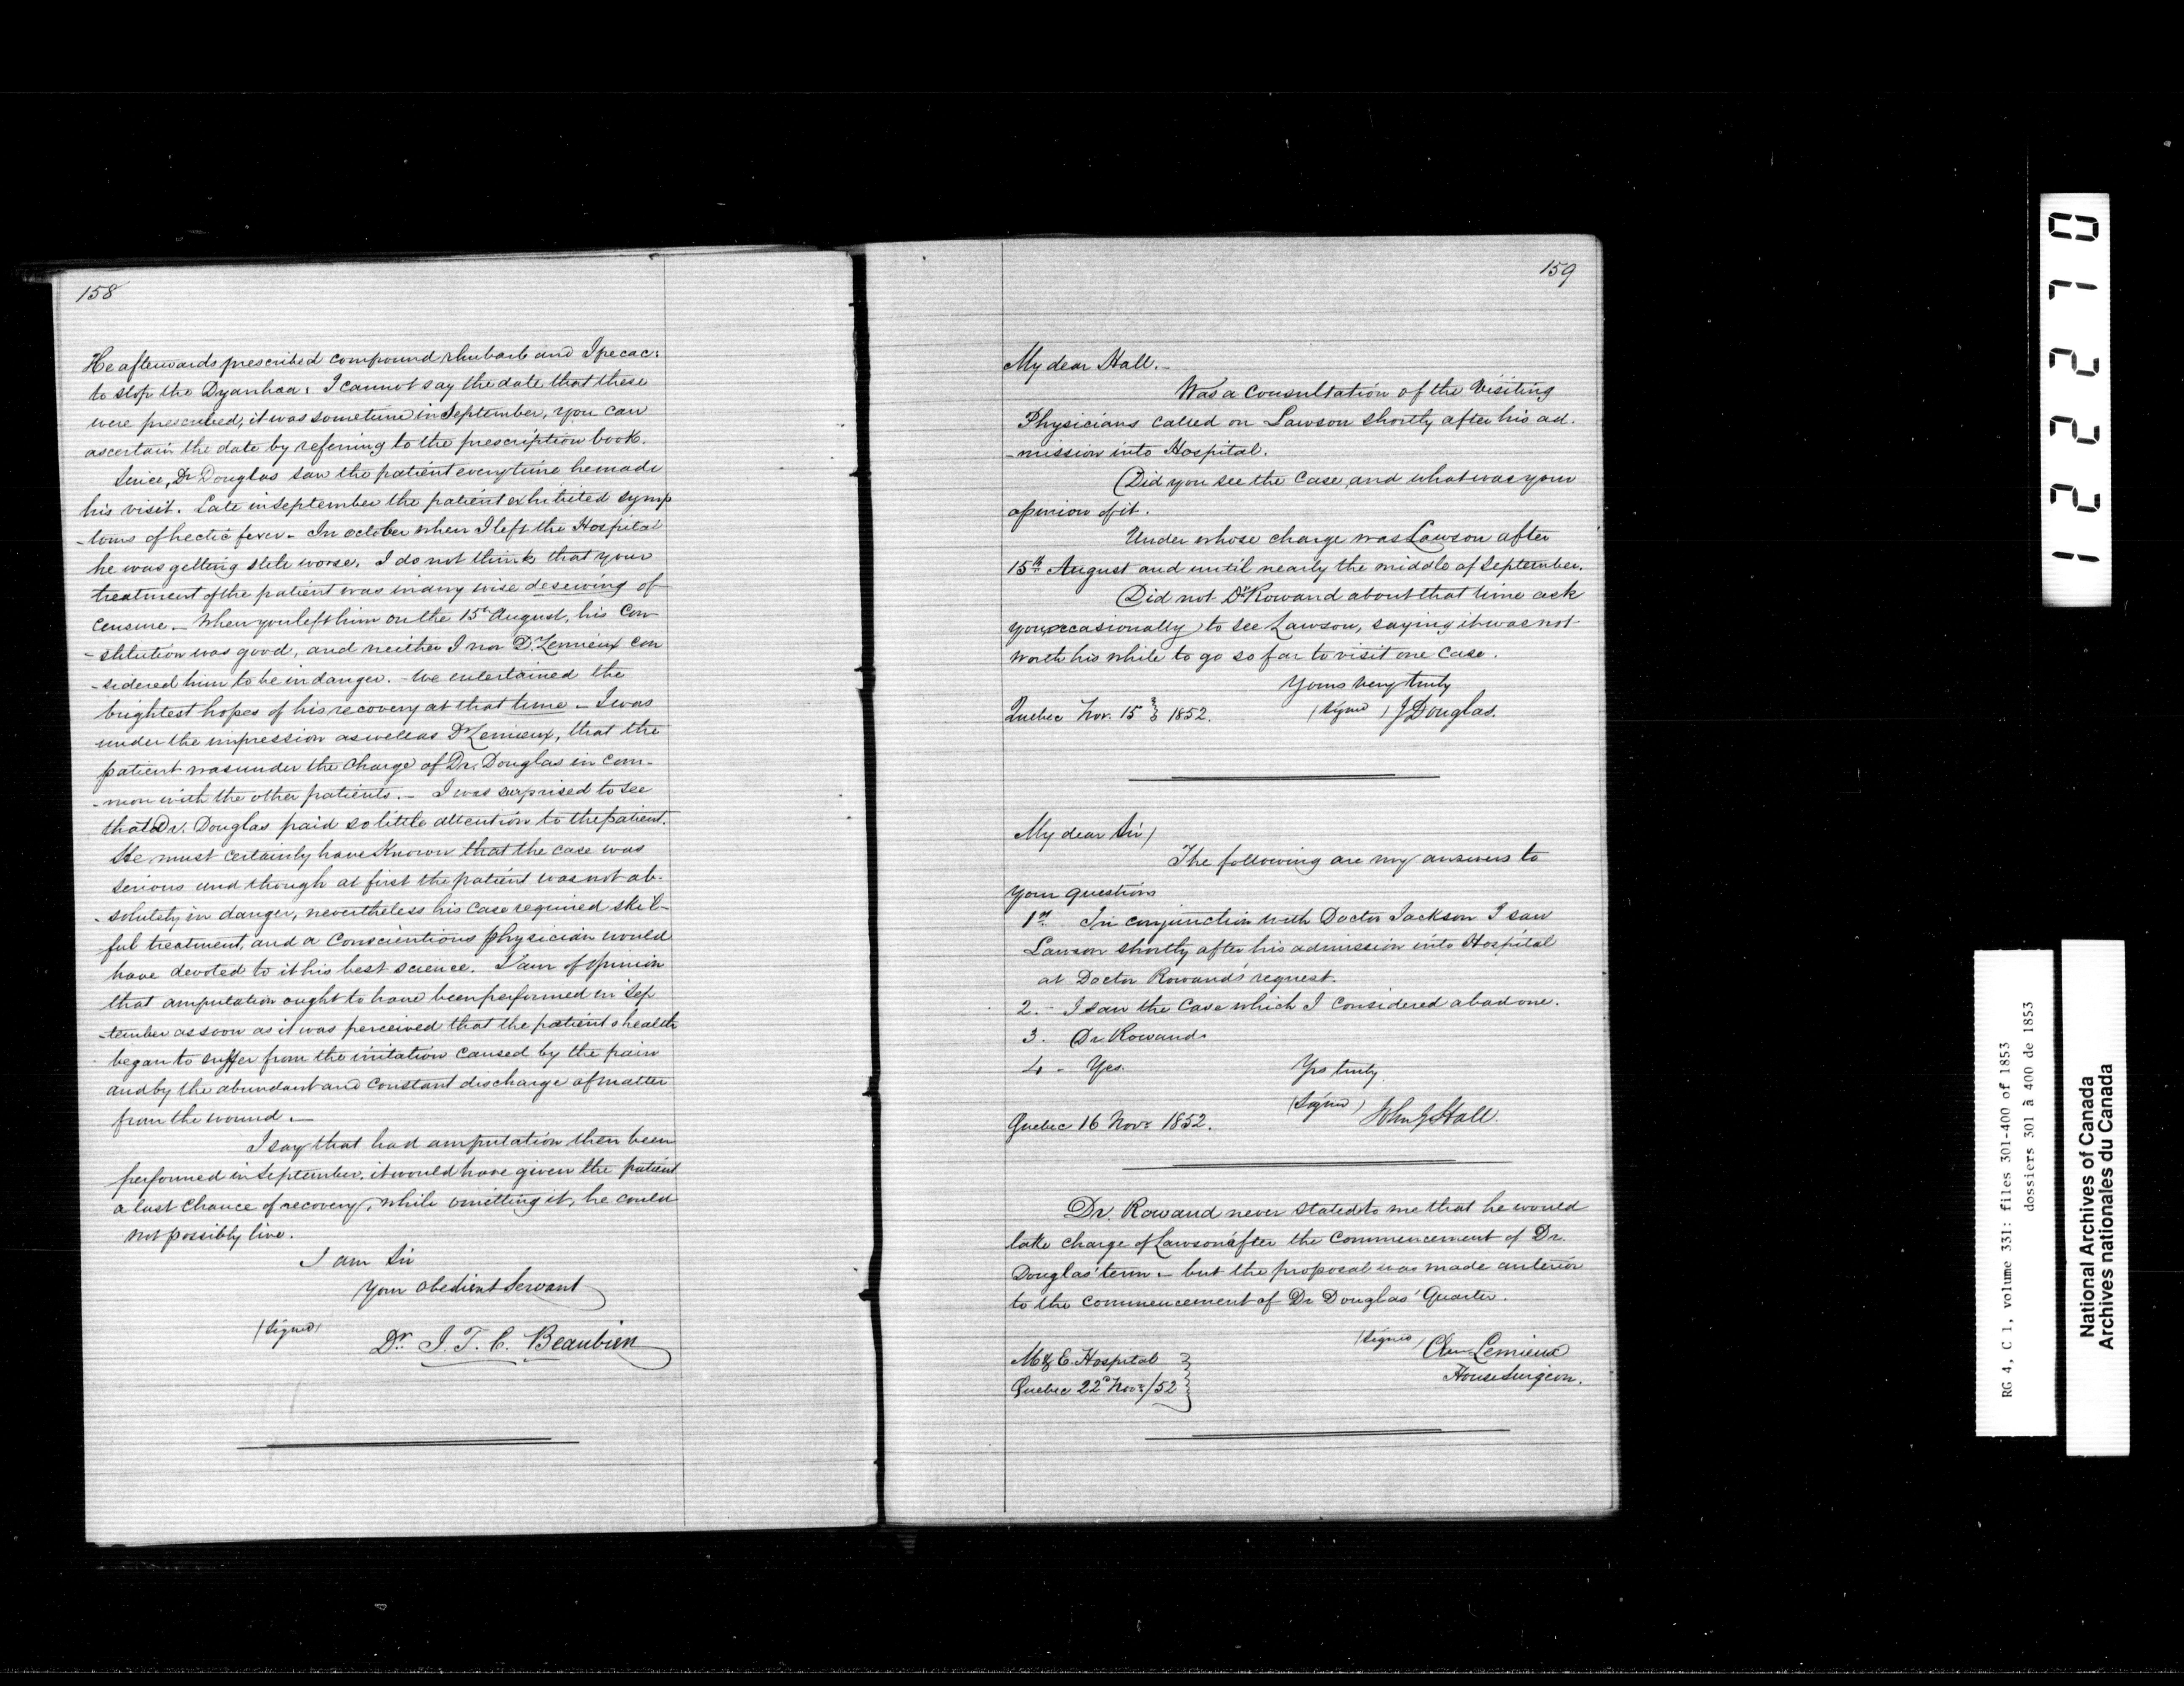 158
He afterwards prescribed compound rhubarb and Ipecac:
to stop the Dyarrhaa. I cannot say the date that these
were prescribed, it was sometime in September, you can
ascertain the date by referring to the prescription book.
Since, Dr Douglas saw the patient every time he made
his visit. Late in September the patient exhibited symp
-toms of hectic fever - In october when I left the Hospital
he was getting still worse. I do not think that your
treatment of the patient was in any wise deserving of
censure - When you left him on the 15th August, his con
-stitution was good, and neither I nor Dr. Lemieux con
-sidered him to be in danger. - We entertained the
brightest hopes of his recovery at that time - I was
under the impression as well as Dr Lemieux, that the
patient was under the charge of Dr. Douglas in com-
-mon with the other patients. - I was surprised to see
that Dr. Douglas paid so little attention to the patient.
He must certainly have known that the case was
serious and though at first the patient was not ab-
-solutely in danger, nevertheless his case required skil-
ful treatment, and a conscientious physician would
have devoted to it his best science. I am of opinion
that amputation ought to have been performed in Sep
-tember as soon as it was perceived that the patients health
began to suffer from the irritation caused by the pain
and by the abundant and constant discharge of matter
from the wound. -
I say that had amputation then been
performed in September, it would have given the patient
a last chance of recovery, while omitting it, he could
not possibly live.
I am Sir
Your obedient Servant
(Signed)
Dr. J. T. C. Beaubien
159
My dear Hall. -
Was a consultation of the Visiting
Physicians called on Lawson shortly after his ad.
-mission into Hospital.
Did you see the case, and what was your
opinion of it.
Under whose charge was Lawson after
15th August and until nearly the middle of September.
Did not Dr Rowand about that time ask
you occasionally to see Lawson, saying it was not
worth his while to go so far to visit one case.
Yours very truly
Quebec Nov. 15 1852. (signed) J Douglas.
My dear Sir,
The following are my answers to
your questions
1st In conjunction with Doctor Jackson I saw
Lawson shortly after his admission into Hospital
at Doctor Rowand's request.
2. - I saw the case which I considered a bad one.
3. Dr Rowand.
4 - Yes. Yrs truly.
(Signed) John J Hall.
Quebec 16 Novr 1852.
Dr. Rowand never stated to me that he would
take charge of Lawson after the commencement of Dr.
Douglas' term - but the proposal was made anterior
to the commencement of Dr Douglas' Quarter.
(signed)
Lemieux
M & E. Hospital
House Surgeon.
Quebec 22d Novr/52
122270
RG 4, C 1, volume 331: files 301-400 of 1853
dossiers 301 à 400 de 1853
National Archives of Canada
Archives nationales du Canada